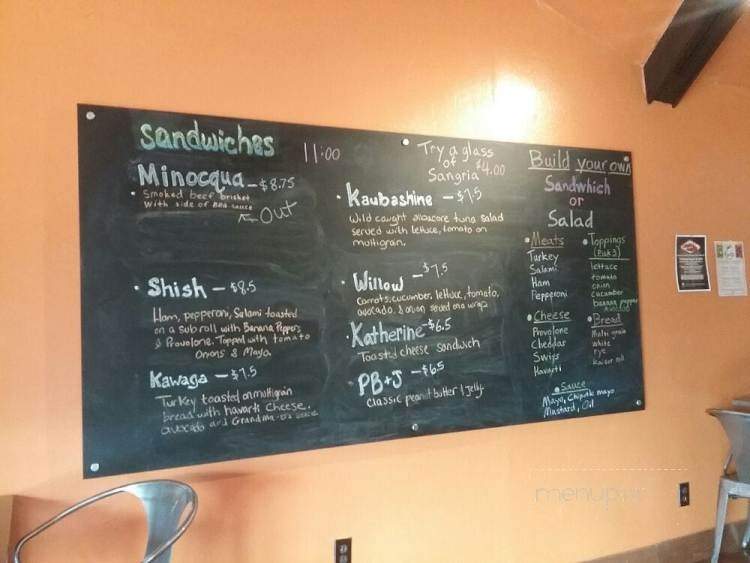 Sandwiches
11:00
Minocqua - $8.75
• Smoked beef brisket
with side of BBQ sauce
Out
• Shish - $8.5
Ham, pepperoni, Salami toasted
on a sub roll with Banana Peppers
& Provolone. Topped with tomato
Onions & Mayo
Kawaga - $7.5
Turkey toasted on multigrain
bread with havarti cheese.
avocado and Grandma
Try a glass
of $4.00
Sangria
• Kaubashine - $7.5
Wild caught albacore tuna salad
served with lettuce, tomato on
multigrain.
• Willow - $7.5
Carrots, cucumber, lettuce, tomato,
avocado, & onion served on a wrap
• Katherine - $6.5
Toasted cheese sandwich
• PB+J - $6.5
classic peanut butter & jelly
Build your own
Sandwhich
or
Salad
• Meats
Turkey
Salami
Ham
Pepperoni
• Toppings
(Pick 3)
lettuce
tomato
onion
cucumber
banana pepper
Avocado
• Cheese
Provolone
Cheddar
Swiss
Havarti
• Bread
Multi grain
white
rye
Kaiser roll
• Sauce
Mayo, Chipotle mayo
Mustard, Oil